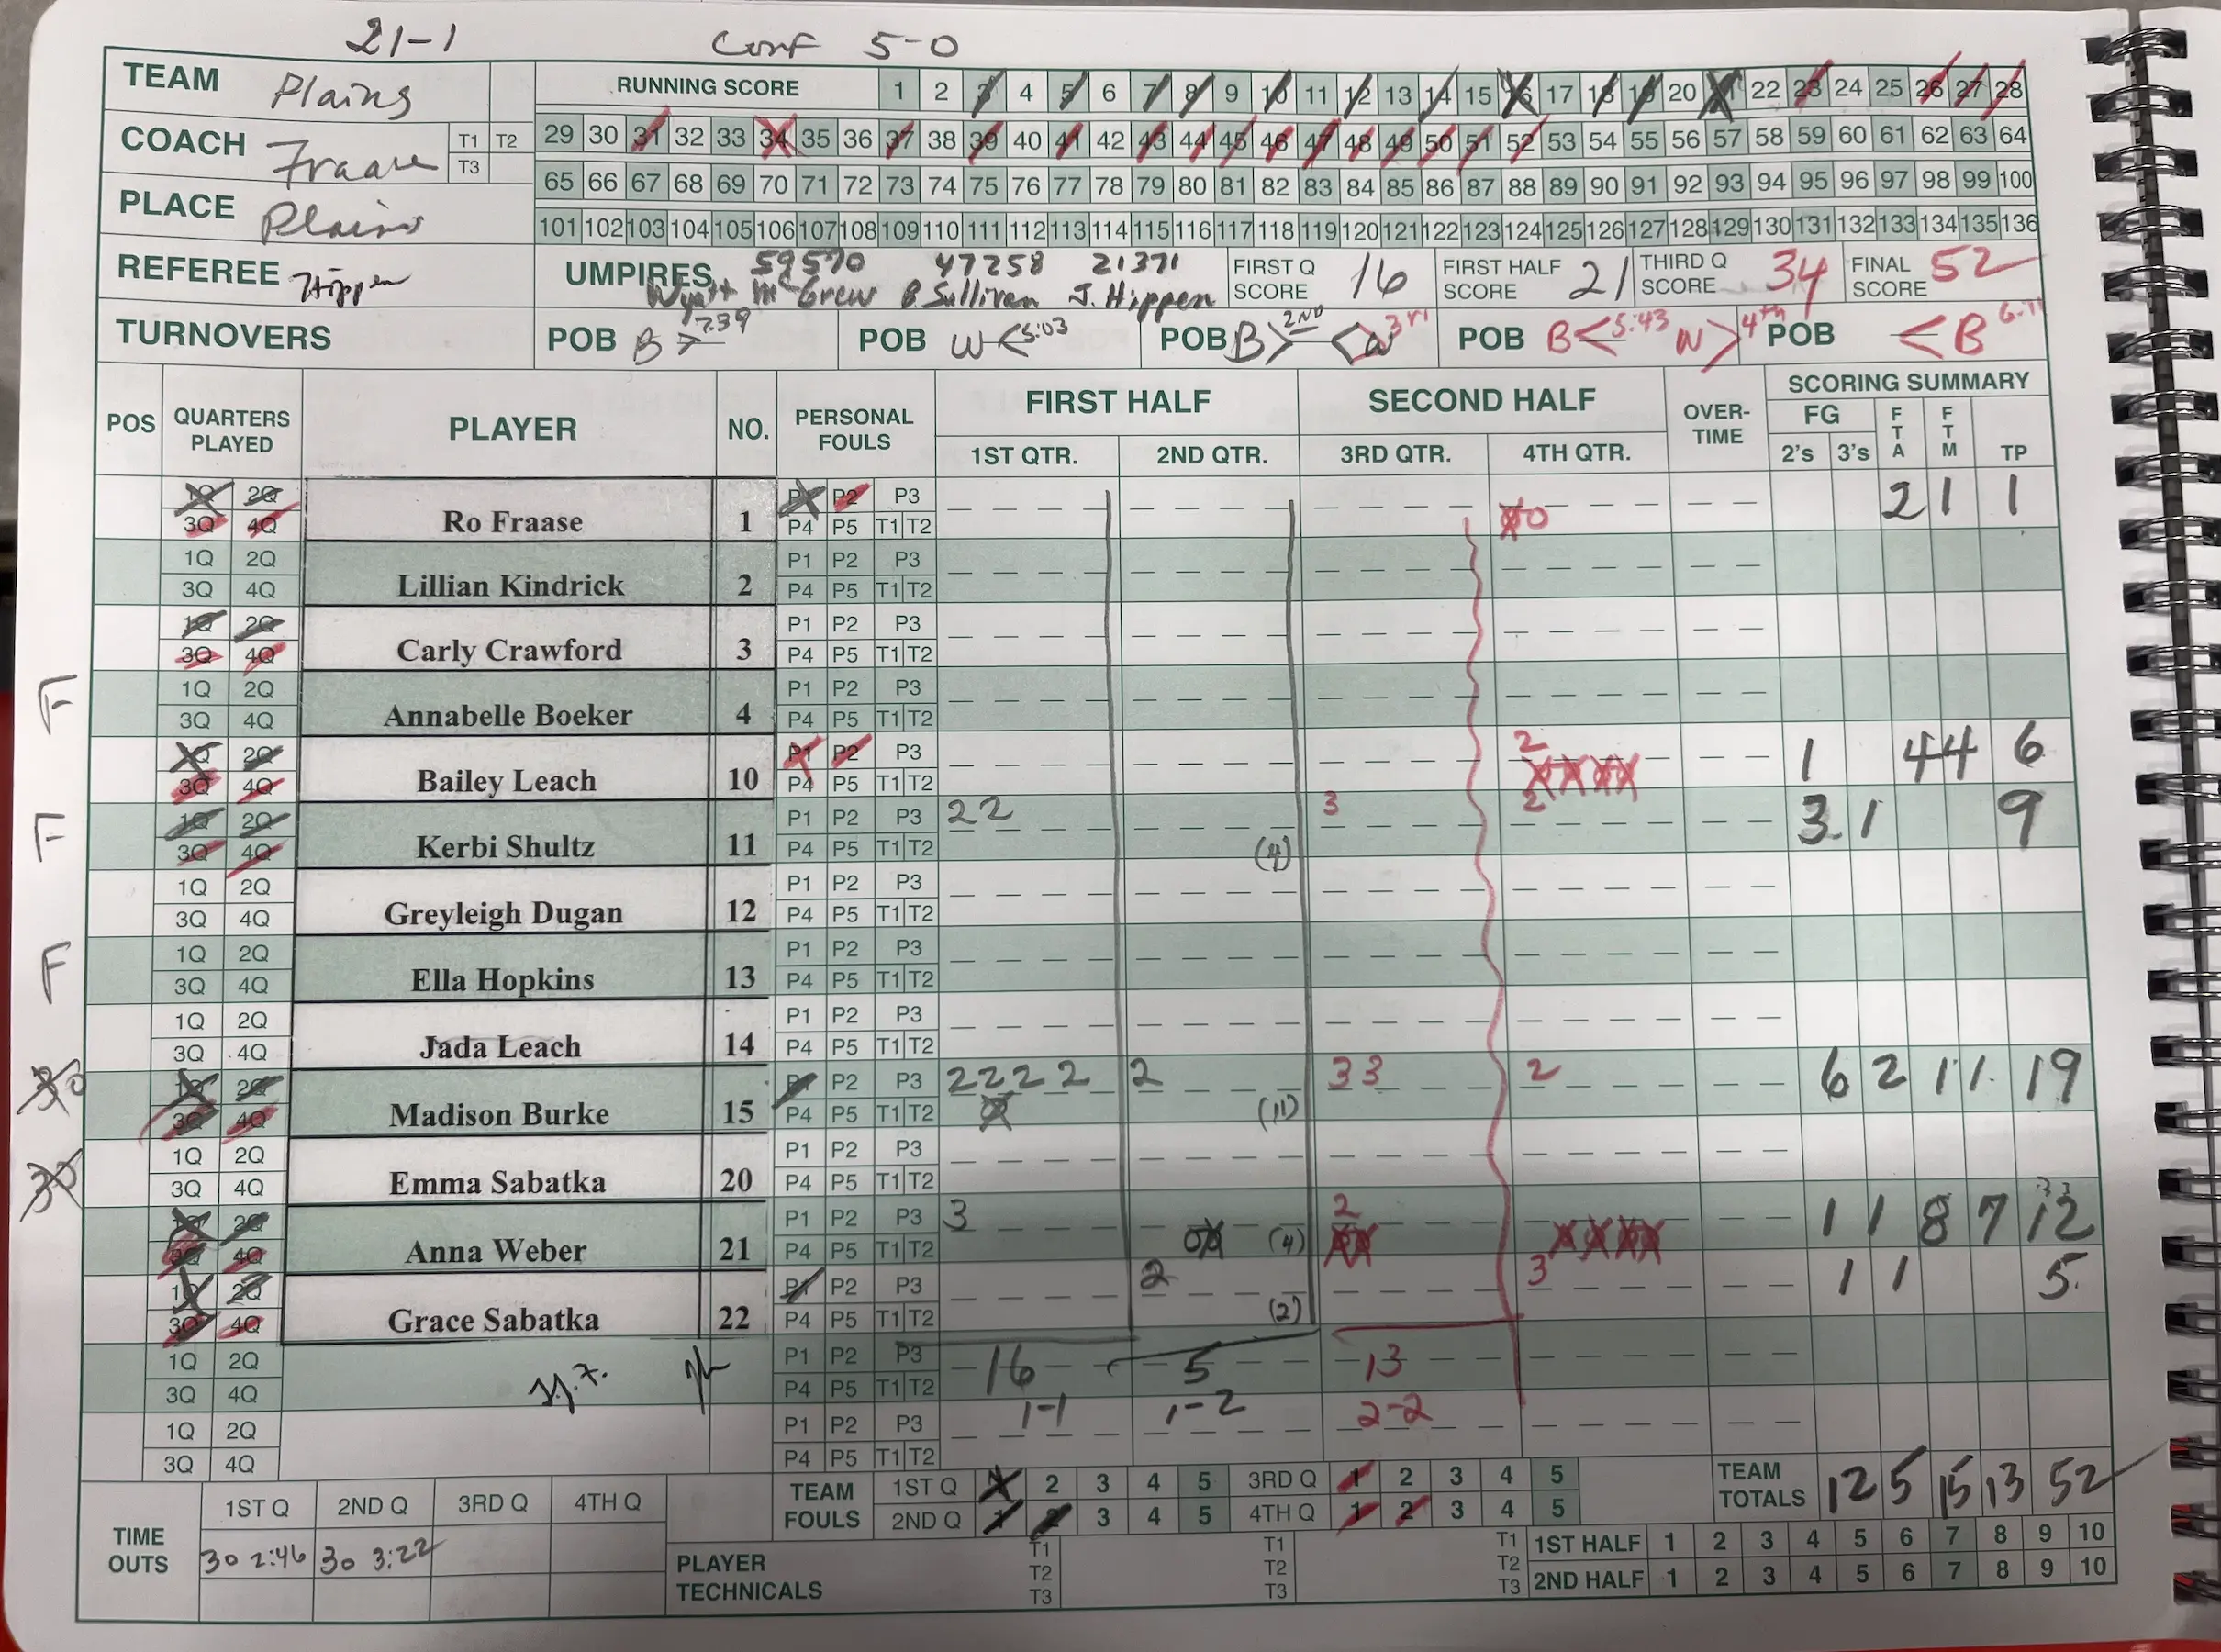 21-1 Conf 5-0
TEAM Plains
RUNNING SCORE 1 2 3 4 5 6 7 8 9 10 11 12 13 14 15 16 17 18 19 20 21 22 23 24 25 26 27 28
COACH Fraase T1 T2 T3
29 30 31 32 33 34 35 36 37 38 39 40 41 42 43 44 45 46 47 48 49 50 51 52 53 54 55 56 57 58 59 60 61 62 63 64
65 66 67 68 69 70 71 72 73 74 75 76 77 78 79 80 81 82 83 84 85 86 87 88 89 90 91 92 93 94 95 96 97 98 99 100
PLACE Plains
101 102 103 104 105 106 107 108 109 110 111 112 113 114 115 116 117 118 119 120 121 122 123 124 125 126 127 128 129 130 131 132 133 134 135 136
REFEREE Hippen
UMPIRES 59570 47258 21371
Wyatt McGrew B. Sullivan J. Hippen
FIRST Q SCORE 16
FIRST HALF SCORE 21
THIRD Q SCORE 34
FINAL SCORE 52
TURNOVERS
POB B > 7:39
POB W < 5:03
POB B > 2ND < W 3rd
POB B < 5:43 W > 4th
POB < B
POS QUARTERS PLAYED PLAYER NO. PERSONAL FOULS FIRST HALF SECOND HALF OVER-TIME SCORING SUMMARY
1ST QTR. 2ND QTR. 3RD QTR. 4TH QTR. FG 2's 3's FTA FTM TP
1Q 2Q P1 P2 P3
3Q 4Q Ro Fraase 1 P4 P5 T1 T2 0 2 1 1
1Q 2Q P1 P2 P3
3Q 4Q Lillian Kindrick 2 P4 P5 T1 T2
1Q 2Q P1 P2 P3
3Q 4Q Carly Crawford 3 P4 P5 T1 T2
F 1Q 2Q P1 P2 P3
3Q 4Q Annabelle Boeker 4 P4 P5 T1 T2
1Q 2Q P1 P2 P3 2
3Q 4Q Bailey Leach 10 P4 P5 T1 T2 1 4 4 6
F 1Q 2Q P1 P2 P3 2 2 3 2
3Q 4Q Kerbi Shultz 11 P4 P5 T1 T2 (4) 3 1 9
1Q 2Q P1 P2 P3
3Q 4Q Greyleigh Dugan 12 P4 P5 T1 T2
F 1Q 2Q P1 P2 P3
3Q 4Q Ella Hopkins 13 P4 P5 T1 T2
1Q 2Q P1 P2 P3
3Q 4Q Jada Leach 14 P4 P5 T1 T2
30 1Q 2Q P1 P2 P3 2 2 2 2 2 3 3 2
3Q 4Q Madison Burke 15 P4 P5 T1 T2 (11) 6 2 1 1 19
30 1Q 2Q P1 P2 P3
3Q 4Q Emma Sabatka 20 P4 P5 T1 T2
1Q 2Q P1 P2 P3 3 2
3Q 4Q Anna Weber 21 P4 P5 T1 T2 (4) 1 1 8 7 12
1Q 2Q P1 P2 P3 2 3
3Q 4Q Grace Sabatka 22 P4 P5 T1 T2 (2) 1 1 5
1Q 2Q P1 P2 P3 16 5 13
3Q 4Q P4 P5 T1 T2
1Q 2Q P1 P2 P3 1-1 1-2 2-2
3Q 4Q P4 P5 T1 T2
TIME OUTS 1ST Q 2ND Q 3RD Q 4TH Q
30 2:46 30 3:22
TEAM FOULS 1ST Q 1 2 3 4 5 3RD Q 1 2 3 4 5
2ND Q 1 2 3 4 5 4TH Q 1 2 3 4 5
TEAM TOTALS 12 5 15 13 52
PLAYER TECHNICALS T1 T2 T3 T1 T2 T3 T1 T2 T3
1ST HALF 1 2 3 4 5 6 7 8 9 10
2ND HALF 1 2 3 4 5 6 7 8 9 10